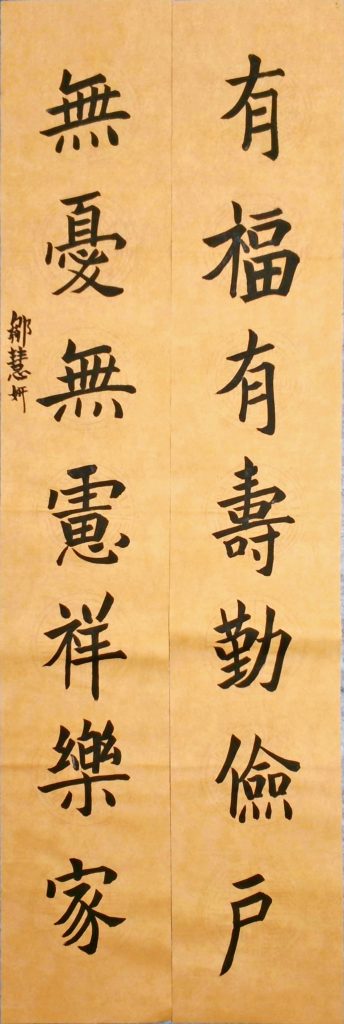 有福有壽勤儉戶
無憂無慮祥樂家
鄒慧妍